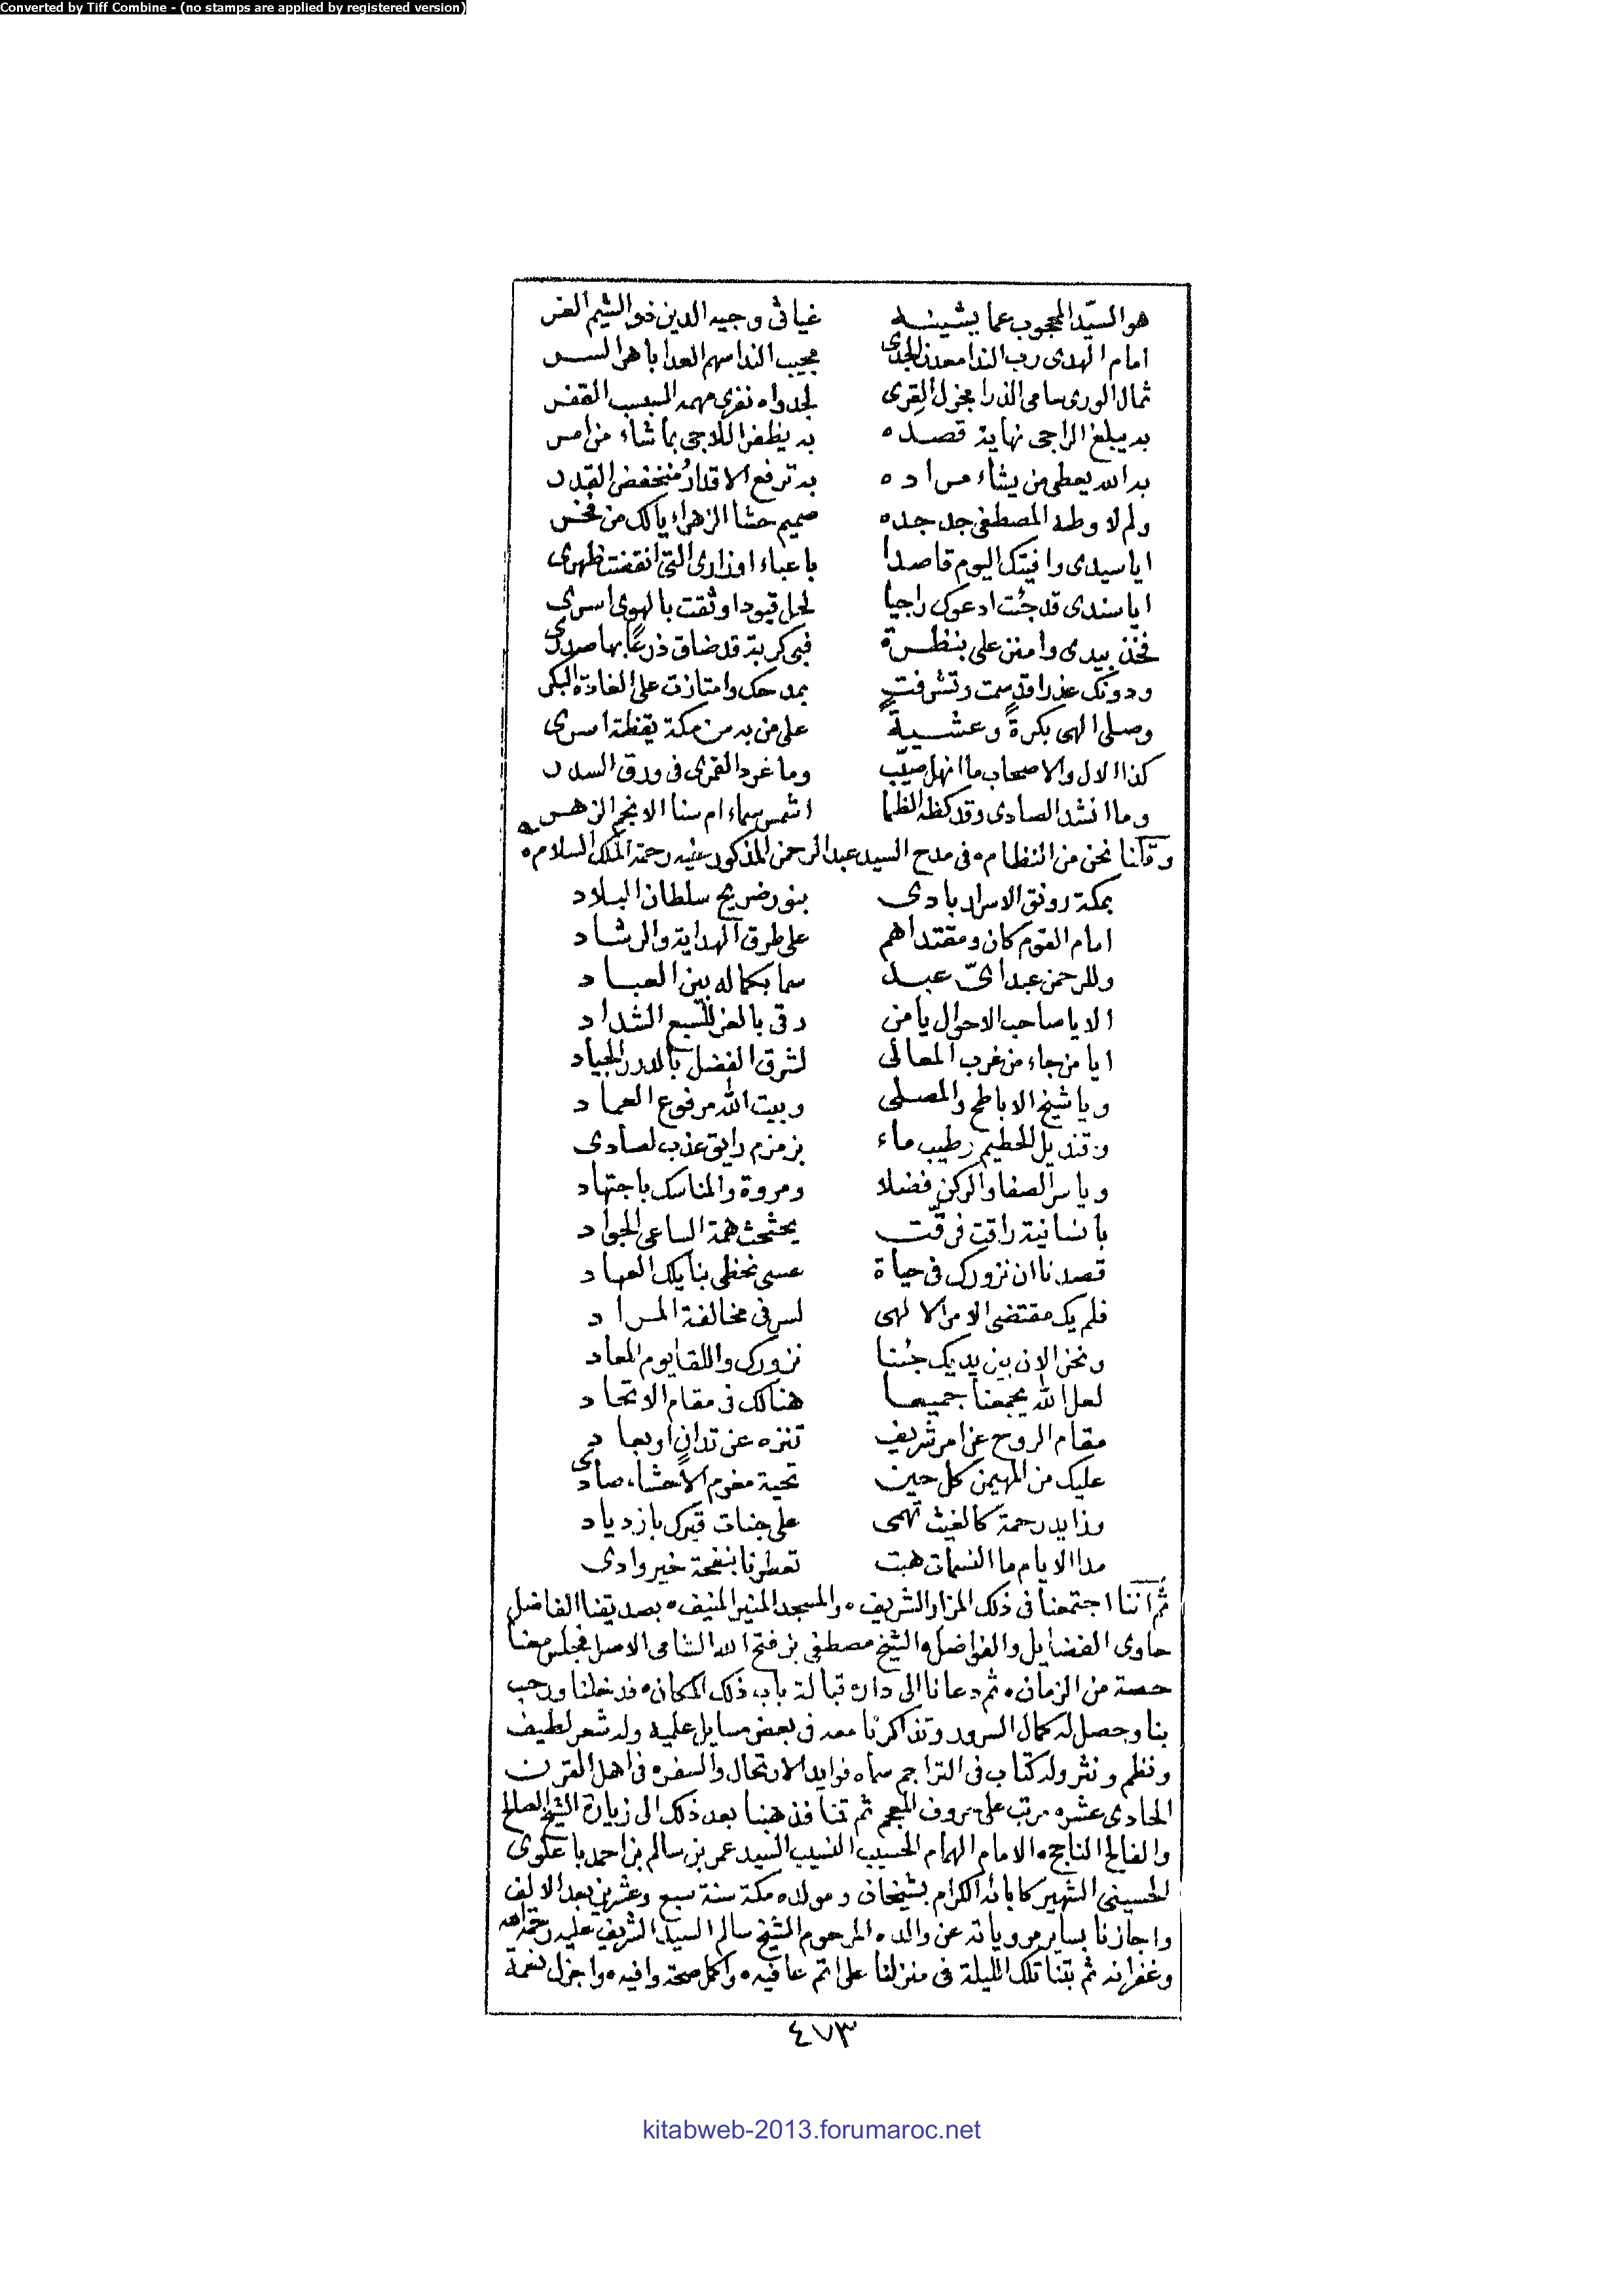 Converted by Tiff Combine - (no stamps are applied by registered version)
هو السيّد المحجوب عما يشينه غياثى وجيه الدين ذو الشيم الغر
امام الهدى رب الندا معدن الجدى مجيب الندا سهم العدا باهر السر
ثمال الورى سامى الذرا مجزل القِرى لجدواه نفرى مهمه السبسب القفر
به يبلغ الراجى نهاية قصده به يظفر اللاجى بما شاء من امر
به الله يعطى من يشاء مراده به ترفع الاقدارُ منخفض القدر
ولم لا وطه المصطفى جد جده صميم حشا الزهراء يالك من فخر
ايا سيدى وافيتك اليوم قاصدا باعباء اوزارى التى انقضت ظهرى
ايا سندى قد جئت ادعوك راجيا لحل قيود اوثقت بالهوى اسرى
فخذ بيدى وامنن على بنظرة فبى كربة قد ضاق ذرعًا بها صدرى
ودونك عذرا قد سمت وتشرفت بمدحك وامتازت على الغادة البكر
وصلى الهى بكرةً وعشيةً على من به من مكة يقظة اسرى
كذا الال والاصحاب ما انهل صيّب وما غرد القمرى فى ورق السدر
وما انشد الصادى وقد كظه الظما اشمس سماء ام سنا الانجم الزهر
وقلنا نحن من النظام ه فى مدح السيد عبد الرحمن المذكور عليه رحمة الملك السلام ه
بمكة رونق الاسرار بادى بنور ضريح سلطان البلاد
امام القوم كان ومقتداهم على طرق الهداية والرشاد
وللرحمن عبد اىّ عبد سما بكماله بين العباد
الا يا صاحب الاحوال يا من رقى بالعز للسبع الشداد
ايا من جاء من غرب المعالى لشرق الفضل بالدرر الجياد
ويا شيخ الاباطح والمصلى وبيت الله مرفوع العماد
وقنديل الحطيم رطيب ماء بزمزم رايق عذب لصادى
ويا سر الصفا والركن فضلا ومروة والمناسك باجتهاد
بانسانية راقت فرقّت يحثحث همة الساعى الجواد
قصدنا ان نزورك فى حياة عسى نحظى بنايلك العهاد
فلم يك مقتضى الامر الالهى لسر فى مخالفة المراد
ونحن الان بين يديك جئنا نزورك واللقا يوم المعاد
لعل الله يجمعنا جميعا هنالك فى مقام الاتحاد
مقام الروح عن امر شريف تنزه عن تدانٍ او بعاد
عليك من المهيمن كل حين تحية مغرم الاحشاء صادى
وزايد رحمة كالغيث تهمى على جنبات قبرك بازدياد
مدا الايام ما النسمات هبت تعطرنا بنفحة خير وادى
ثم اننا اجتمعنا فى ذلك المزار الشريف ه والمسجد المنير المنيف ه بصديقنا الفاضل
حاوى الفضايل والفواضل ه الشيخ مصطفى بن فتح الله الشامى الاصل فجلس معنا
حصة من الزمان ه ثم دعانا الى داره قبالة باب ذلك المكان ه فدخلنا ورحب
بنا وحصل له كمال السرور وتذاكرنا معه فى بعض مسايل علمية وله شعر لطيف
ونظم ونثر وله كتاب فى التراجم سماه فوايد الارتحال والسفر ه فى اهل القرن
الحادى عشر ه مرتب على حروف المعجم ثم قمنا فذهبنا بعد ذلك الى زيارة الشيخ الصالح
والفالح الناجح ه الامام الهمام الحسيب النسيب السيد عمر بن سالم بن احمد باعلوى
الحسينى الشهير كابائه الكرام بشيخان ومولده مكة سنة سبع وعشرين بعد الالف
واجازنا بساير مروياته عن والده المرحوم الشيخ سالم السيد الشريف عليه رحمة الله
وغفرانه ثم بتنا تلك الليلة فى منزلنا على اتم عافيه ه واكمل صحة وافيه ه واجزل نعمة
٤٧٣
kitabweb-2013.forumaroc.net